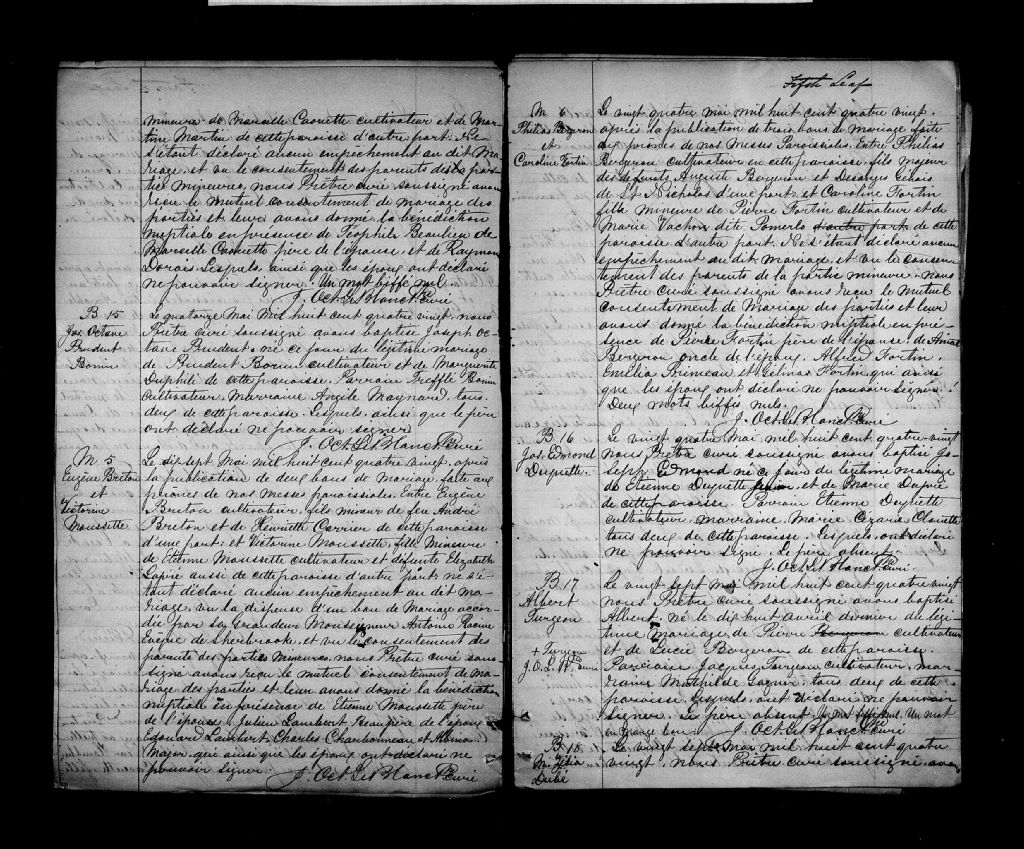 mineure de Marcelle Caouette cultivateur et de Mar-
tine Martin de cette paroisse d'autre part. Ne
s'étant déclaré aucun empêchement au dit Ma-
riage, et vu le consentement des parents des par-
ties mineures, nous Prêtre curé soussigné avons
reçu le mutuel consentement de mariage des
parties et leur avons donné la bénédiction
nuptiale en présence de Téophile Beaulieu de
Marcelle Caouette père de l'épouse, et de Raymon
Dorais Lesquels, ainsi que les époux ont déclaré
ne pouvoir signer. Un mot biffé nul.
J. Oct. Ptre Curé
B 15
Jos. Octave
Prudent
Bonin
Le quatorze Mai Mil huit cent quatre vingt, nous
Prêtre curé soussigné avons baptisé Joseph Oc-
tave Prudent, né ce jour du légitime mariage
de Prudent Bonin cultivateur et de Marguerite
de cette paroisse. Parrain Trefflé Bonin
cultivateur, Marraine Angèle Maynard, tous
deux de cette paroisse. Lesquels, ainsi que le père
ont déclaré ne pouvoir signer
J. Oct. Ptre Curé
M 5
Eugène Breton
et
Victorine
Moussette
Le dix-sept Mai mil huit cent quatre vingt, après
la publication de deux bans de Mariage, faite aux
prônes de nos Messes paroissiales. Entre Eugène
Breton cultivateur, fils mineur de feu André
Breton et de Henriette Carrier de cette paroisse
d'une part: et Victorine Moussette, fille Mineure
de Etienne Moussette cultivateur et défunte Elizabeth
Lapré aussi de cette paroisse d'autre part, ne s'é-
tant déclaré aucun empêchement au dit ma-
riage, vu la dispense d'un ban de Mariage accor-
dée par Sa Grandeur Monseigneur Antoine Racine
Evêque de Sherbrooke, et vu le consentement des
parents des parties Mineures, nous Prêtre curé sous-
signé avons reçu le mutuel consentement de ma-
riage des parties et leur avons donné la bénédiction
nuptiale en présence de Etienne Moussette père
de l'épouse, Julien Lambert Beau père de l'époux
Edouard Lambert, Charles Charbonneau et
Major, qui ainsi que les époux ont déclaré ne
pouvoir signer.
J. Oct. Ptre Curé
Fifth Leaf
M 6
Philias Bergeron
et
Caroline Fortin
Le vingt quatre mai, mil huit cent quatre vingt,
après la publication de trois bans de mariage faite
aux prônes de nos Messes Paroissiales. Entre Philias
Bergeron cultivateur en cette paroisse, fils majeur
des défunts August Bergeron et Desanges Gelais
de St Nicholas d'une part: et Caroline Fortin
fille mineure de Pierre Fortin cultivateur et de
Marie Vachon dite Pomerlo d'autre part de cette
paroisse d'autre part. Ne s'étant déclaré aucun
empêchement au dit mariage, et vu le consen-
tement des parents de la partie mineure. nous
Prêtre curé soussigné avons reçu le mutuel
consentement de Mariage des parties et leur
avons donné la bénédiction nuptiale en pré-
sence de Pierre Fortin père de l'épouse, de
Bergeron oncle de l'époux, Alfred Fortin,
Emélia Primeau et Gélinas Fortin qui ainsi
que les époux ont déclaré ne pouvoir signer.
Deux mots biffés nuls.
J. Oct. Ptre Curé
B 16
Jos. Edmond
Duquette.
Le vingt quatre Mai mil huit cent quatre-vingt
nous Prêtre curé soussigné avons baptisé Jo-
seph Edmond né ce jour du légitime mariage
de Etienne Duquette et de Marie Dupré
de cette paroisse. Parrain Etienne Duquette
cultivateur, marraine Marie Cézarie
tous deux de cette paroisse. Lesquels, ont déclaré
ne pouvoir signé. Le père absent.
J. Oct. Ptre Curé.
B 17
Albert
Turgeon
+ Turgeon
Le vingt sept Mai mil huit cent quatre vingt
nous Prêtre curé soussigné avons baptisé
Albert, né le dix huit avril dernier du légi-
time mariage de Pierre cultivateur
et de Lucie Bergeron de cette paroisse.
Parrain Jacques Turgeon cultivateur, mar-
raine Mathilde Gagner. tous deux de cette
paroisse. Lesquels, ont déclaré ne pouvoir
signer. Le père absent. Un mot biffé nul. Un mot
en marge bon
J. Oct. Ptre Curé
B 18
M. Zélia
Dubé
Le vingt sept Mai mil huit cent quatre
vingt, nous Prêtre curé soussigné, avons